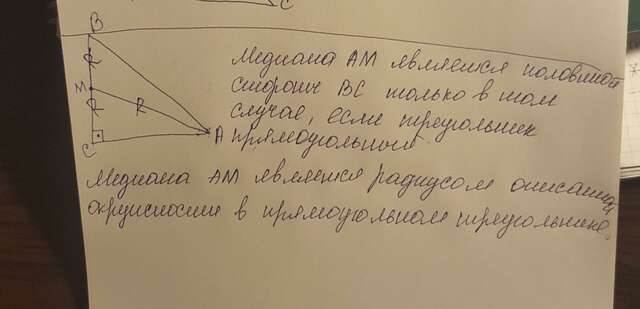 C
B
Медиана AM является половиной
стороне BC только в том
R
M
случае, если треугольник
R
R
A
прямоугольный
C
Медиана AM является радиусом описанной
окружности в прямоугольном треугольнике